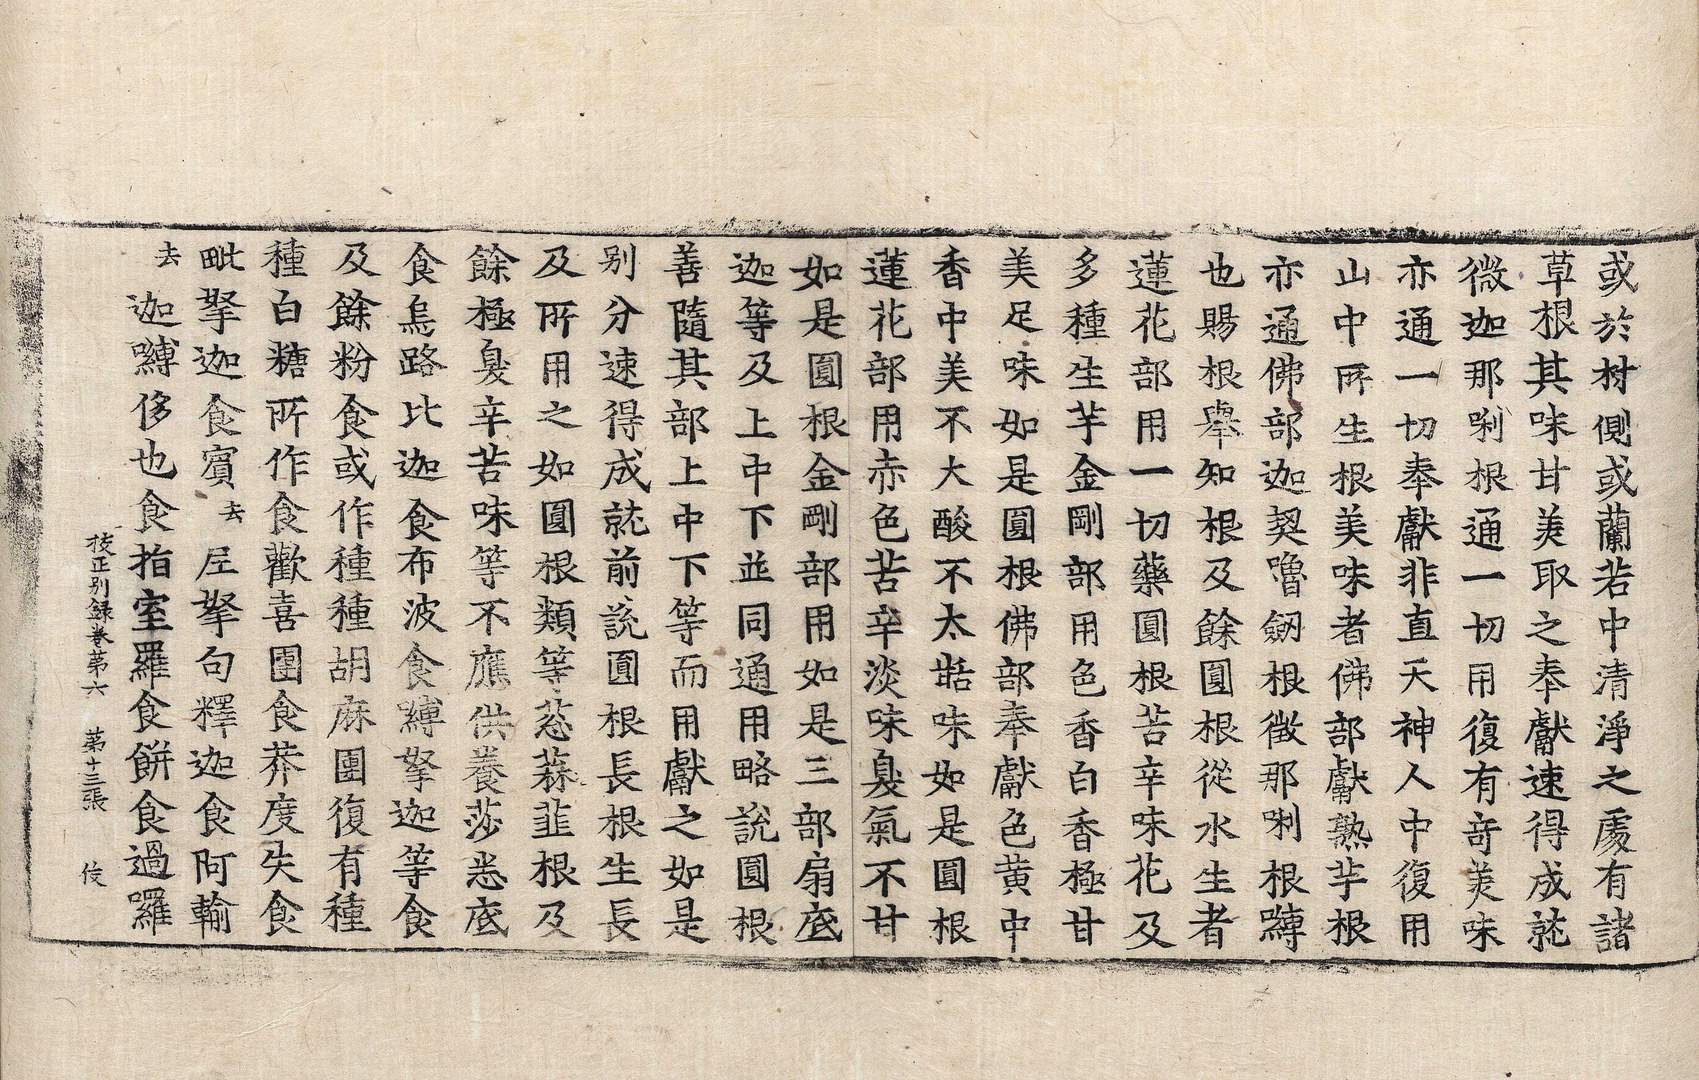 或於村側或蘭若中清淨之處有諸
草根其味甘美取之奉獻速得成就
微迦那唎根通一切用復有奇美味
亦通一切奉獻非直天神人中復用
山中所生根美味者佛部獻熟芋根
亦通佛部迦契嚕劒根徵那唎根嚩
也賜根舉知根及餘圓根從水生者
蓮花部用一切藥圓根苦辛味花及
多種生芋金剛部用色香白香極甘
美足味如是圓根佛部奉獻色黃中
香中美不大酸不太甛味如是圓根
蓮花部用赤色苦辛淡味臭氣不甘
如是圓根金剛部用如是三部扇底
迦等及上中下並同通用略說圓根
善隨其部上中下等而用獻之如是
別分速得成就前說圓根長根生長
及所用之如圓根類等葱蒜韭根及
餘極臭辛苦味等不應供養莎悉底
食烏路比迦食布波食嚩拏迦等食
及餘粉食或作種種胡麻團復有種
種白糖所作食歡喜團食莽度失食
毗拏迦食賓去𤘽拏句釋迦食阿輸
去迦嚩侈也食指室羅食餅食過囉
挍正別錄卷第六 第十三張 伎